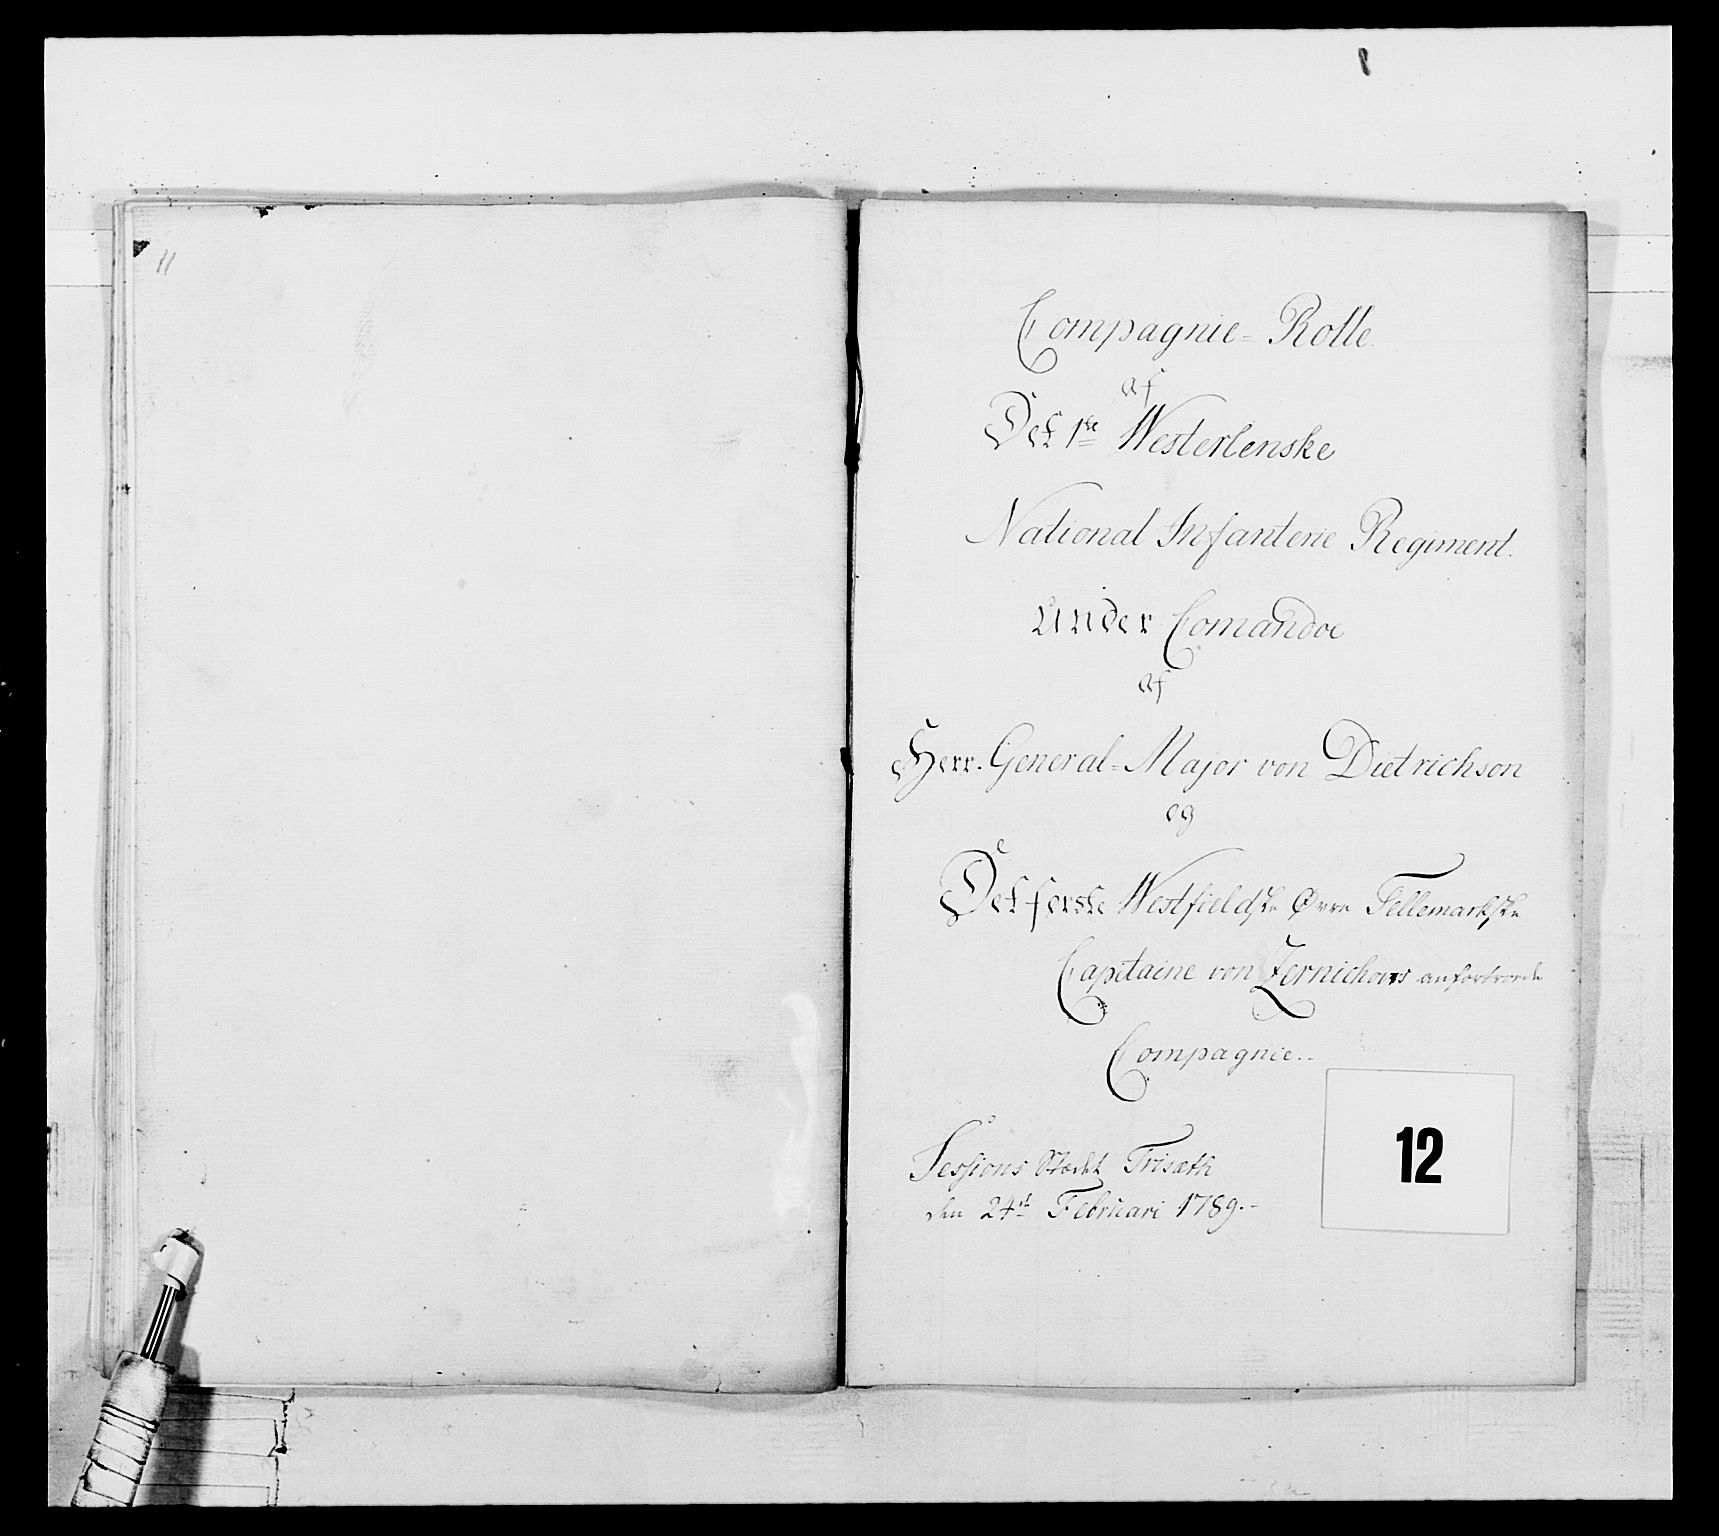 11
Compagnie=Rolle.
af
Det 1ste Westerlenske
National Infanterie Regiment.
Under Comandoe
af
Herr. General=Major von Dietrichson
og
Det første Westfieldske Øvre Tellemarkske
Capitaine von Zernichows anfortrorde
Compagnie..
Sessions Stædet Trisæth
den 24de Februari 1789.-
12